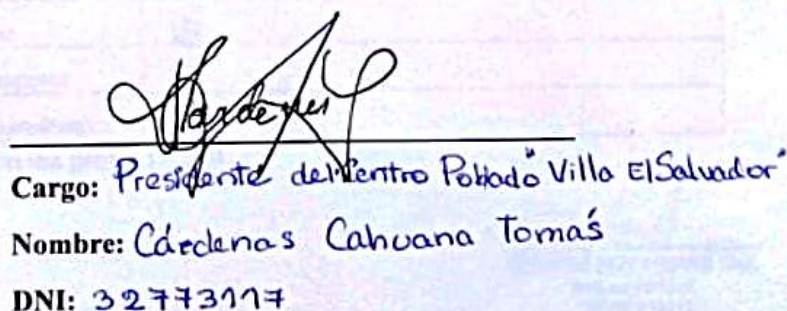 Cardenas
Cargo: Presidente del Centro Poblado "Villa El Salvador"
Nombre: Cárdenas Cahuana Tomás
DNI: 32773117